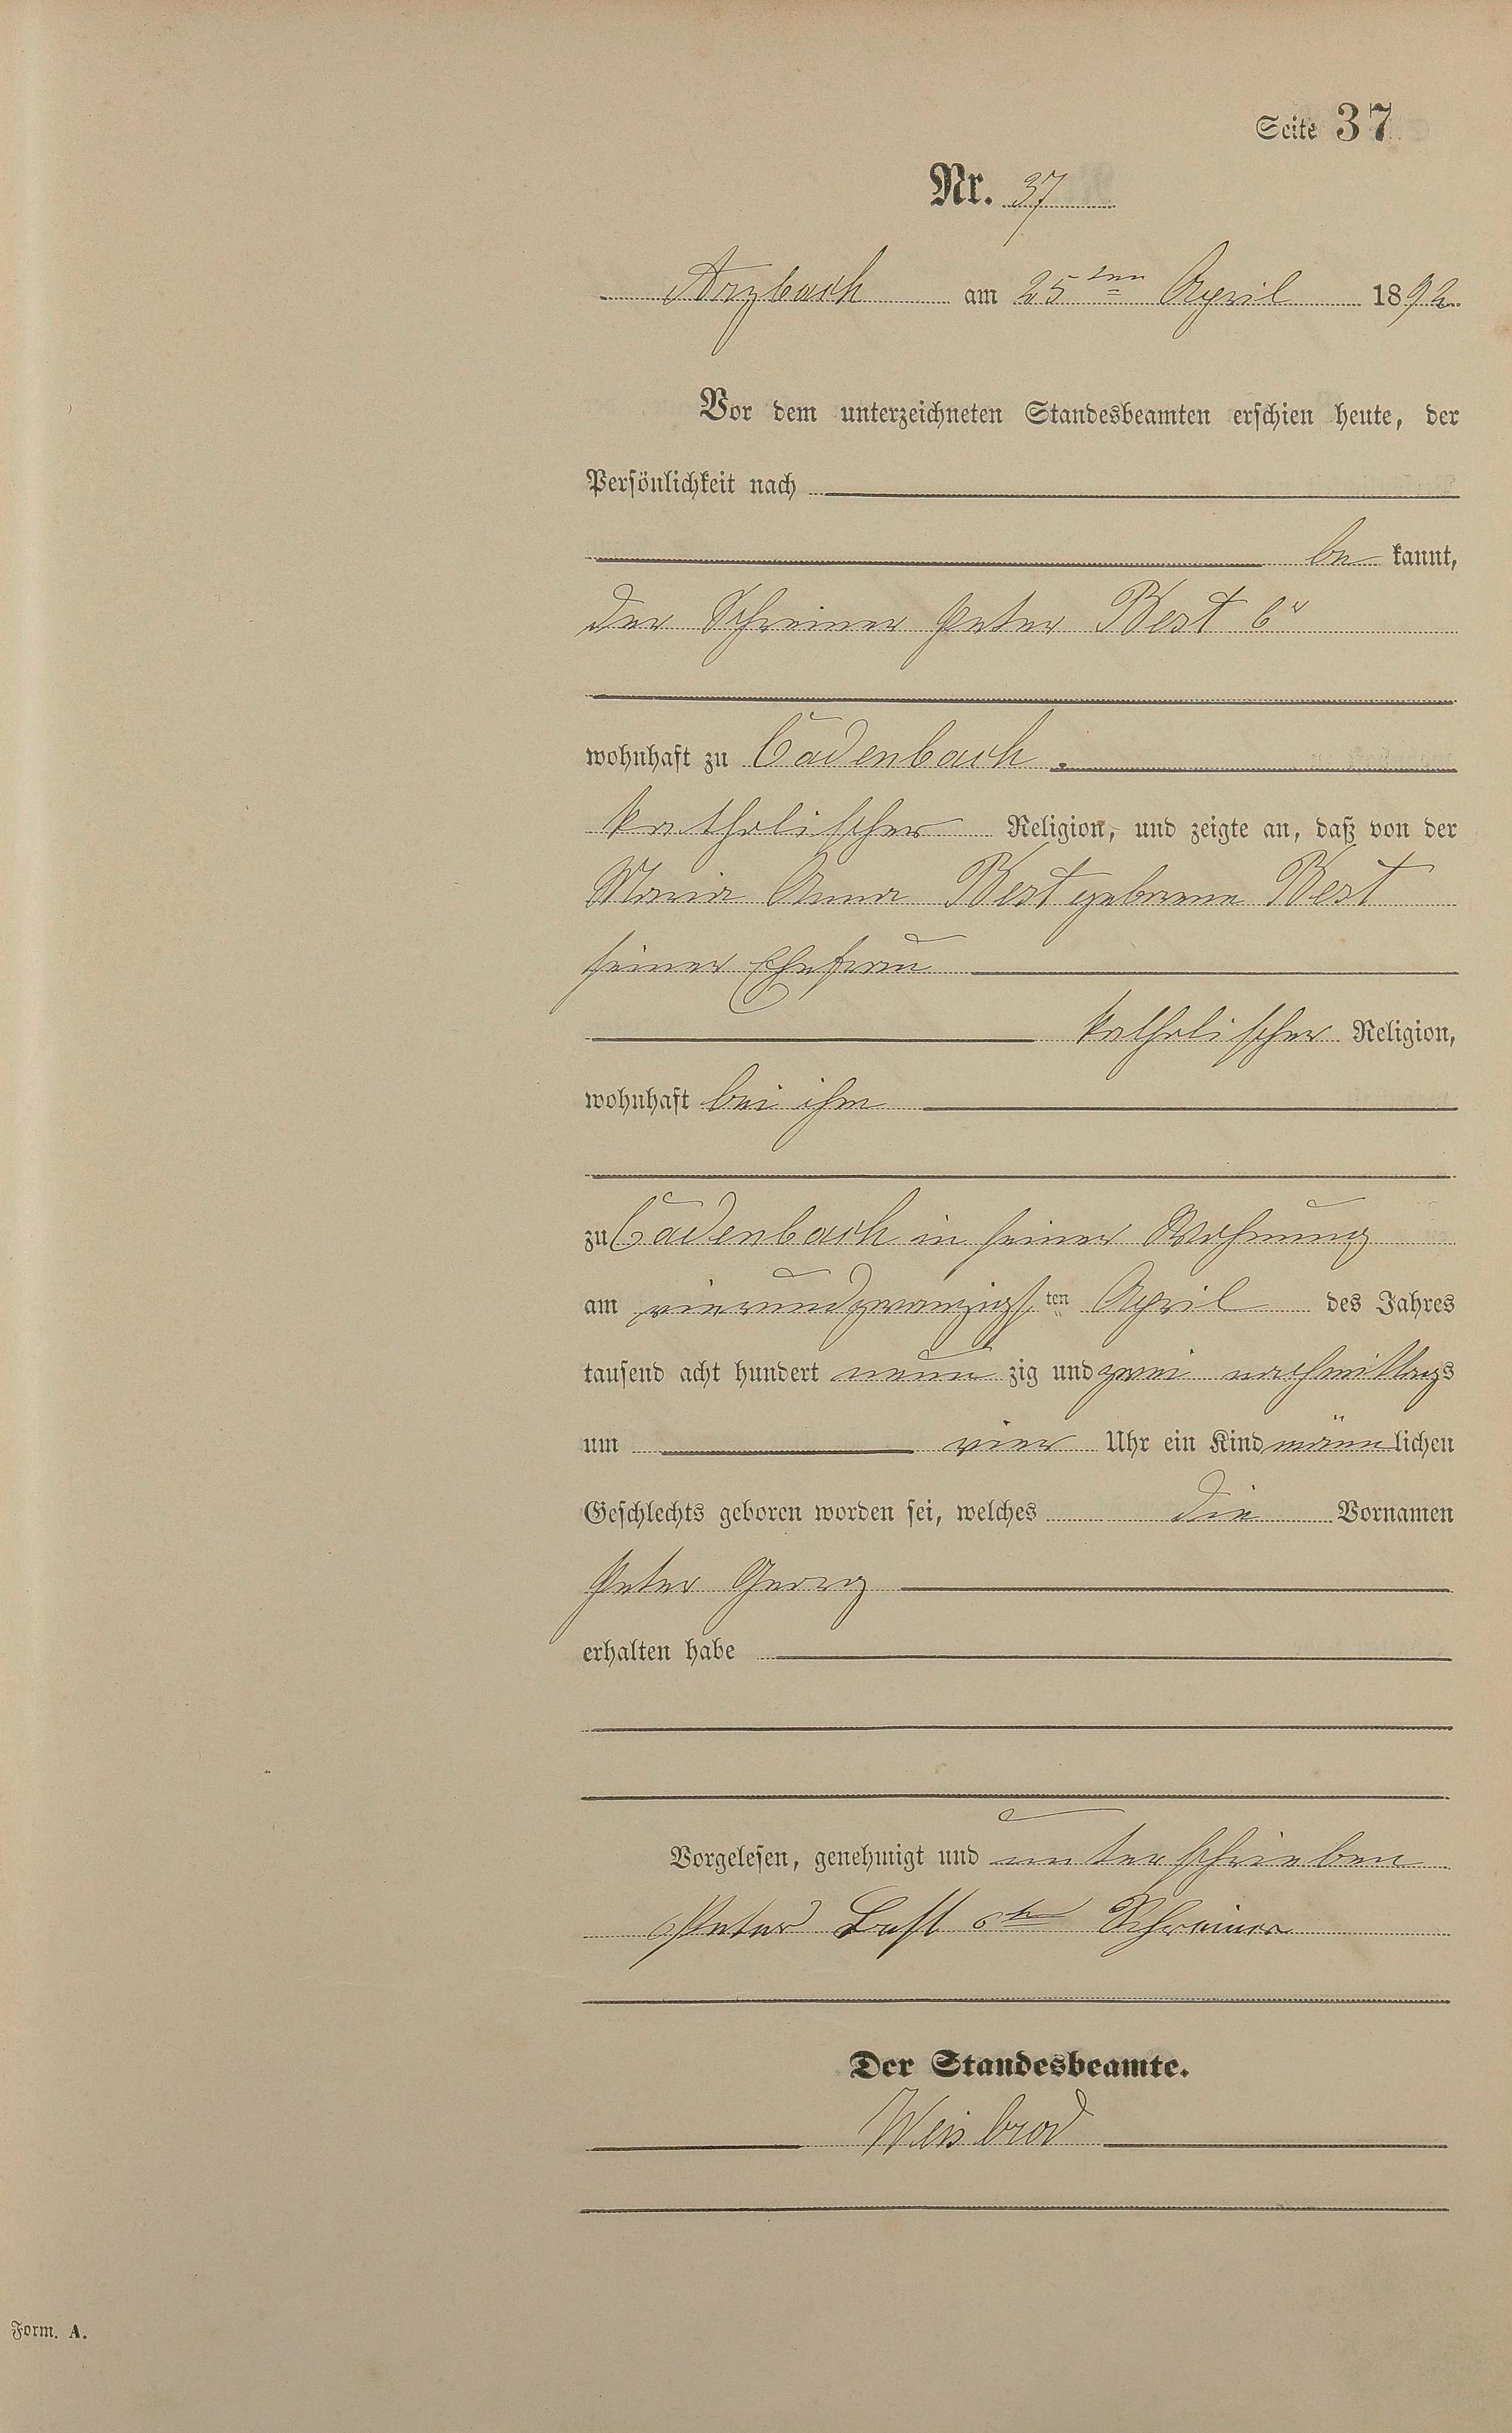 Seite 37
Nr. 37
Arzbach am 25ten April 1892
Vor dem unterzeichneten Standesbeamten erschien heute, der
Persönlichkeit nach
be kannt,
der Schreiner Peter Best 6r
wohnhaft zu Cadenbach.
katholischer Religion, und zeigte an, daß von der
Maria Anna Best geborene Best
seiner Ehefrau
katholischer Religion,
wohnhaft bei ihm
zu Cadenbach in seiner Wohnung
am vierundzwanzigsten April des Jahres
tausend acht hundert neun zig und zwei nachmittags
um vier Uhr ein Kind männlichen
Geschlechts geboren worden sei, welches die Vornamen
Peter Georg
erhalten habe
Vorgelesen, genehmigt und unterschrieben
Peter Best 6te Schreiner
Der Standesbeamte.
Weisbrod
Form. A.